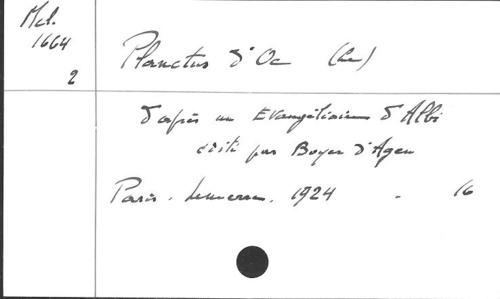 Mel.
1664
2
Planctus d'Oc (Le)
d'après un Evangéliaire d'Albi
édité par Boyer d'Agen
Paris. Lemerre. 1924 - 16